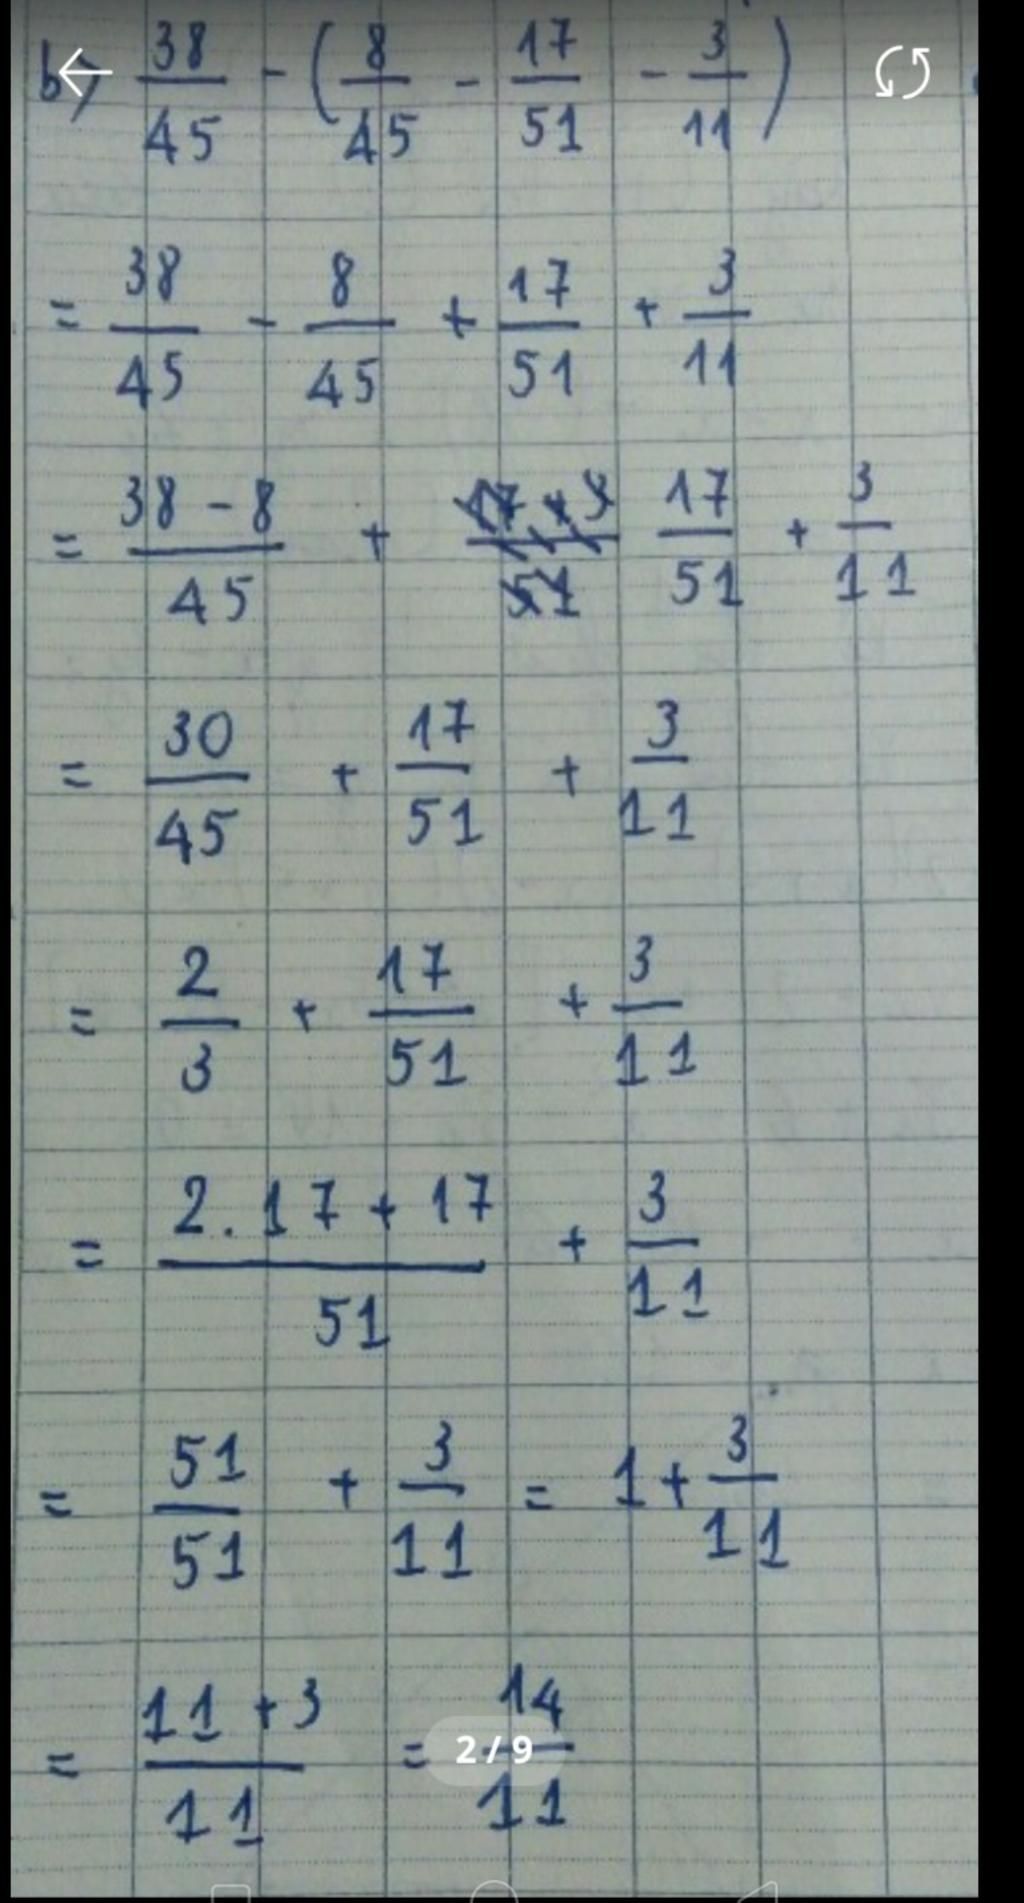 b) 38/45 - (8/45 - 17/51 - 3/11)
= 38/45 - 8/45 + 17/51 + 3/11
= (38 - 8)/45 + 17/51 + 3/11
= 30/45 + 17/51 + 3/11
= 2/3 + 17/51 + 3/11
= (2.17 + 17)/51 + 3/11
= 51/51 + 3/11 = 1 + 3/11
= (11 + 3)/11 = 14/11
2 / 9